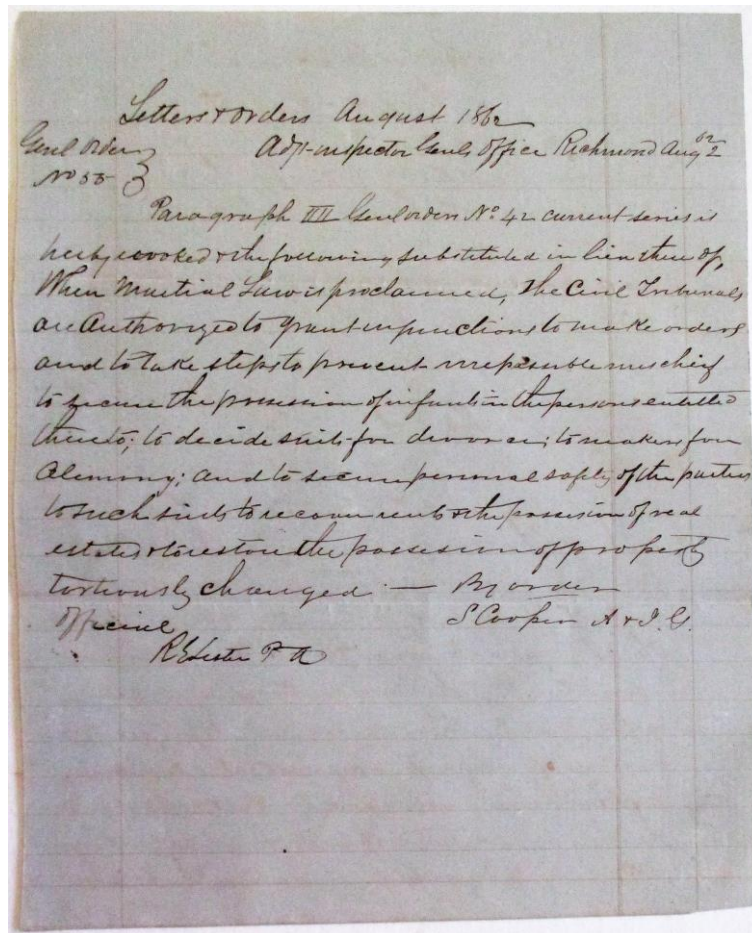 Letters & orders August 1862
Genl orders Adjt-inspector Genls office Richmond Aug 2
No 53
Paragraph III Genl orders No. 42 current series is
herby revoked & the following substituted in lieu there of,
When Martial Law is proclaimed, the Civil Tribunals
are Authorized to grant injunctions to make orders
and to take steps to prevent irreparable mischief
to secure the possession of infants in the persons entitled
thereto; to decide suits for divorce; to make for
Alemony; and to secure personal safty of the parties
to such suits to recover rents & the possession of real
estates & to restore the possession of property
tortiously changed — By order
official S Cooper A & I. G.
R E Lester